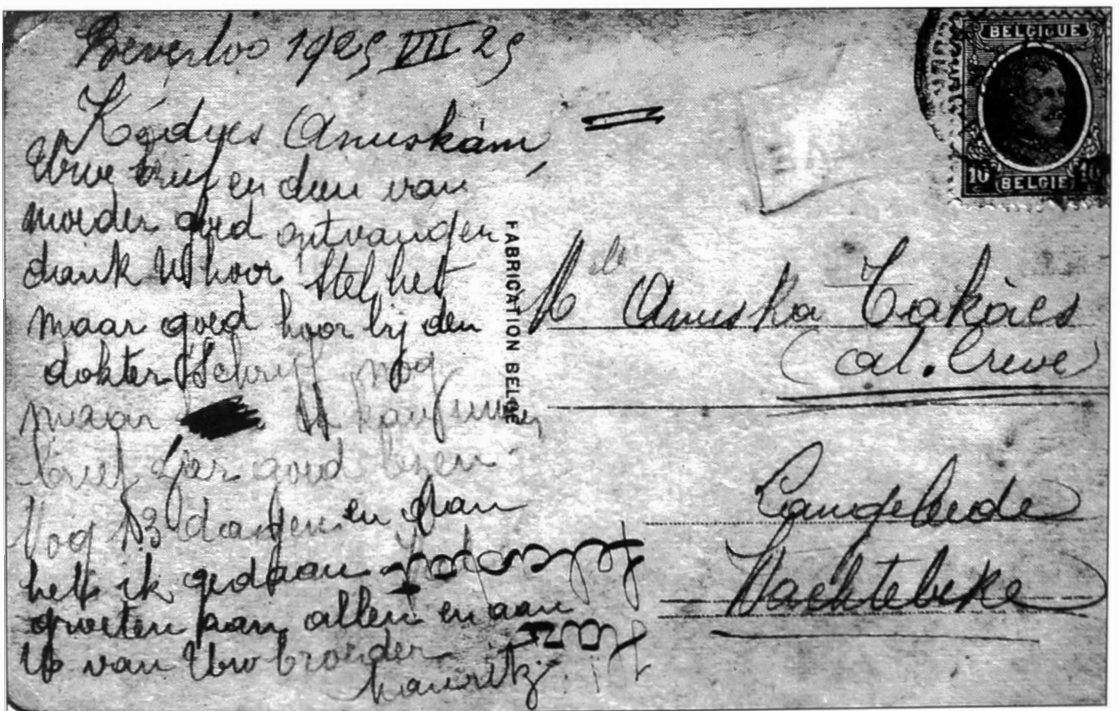 Beverloo 1925 VII 25
Kedyes Anuskám
Uwe brief en dien van
moeder goed ontvangen
dank U hoor Stel het
maar goed hoor bij den
dokter Schrijf nog
maar U kan uwen
brief zeer goed lezen
Nog 13 dagen en dan
heb ik gedaan
groeten aan allen en aan
U van Uw broeder
Mauritz
FABRICATION BELGE
BELGIQUE
10 10
BELGIE
Melle Anuska Takács
(al. Creve)
Langeleede
Wachtebeke